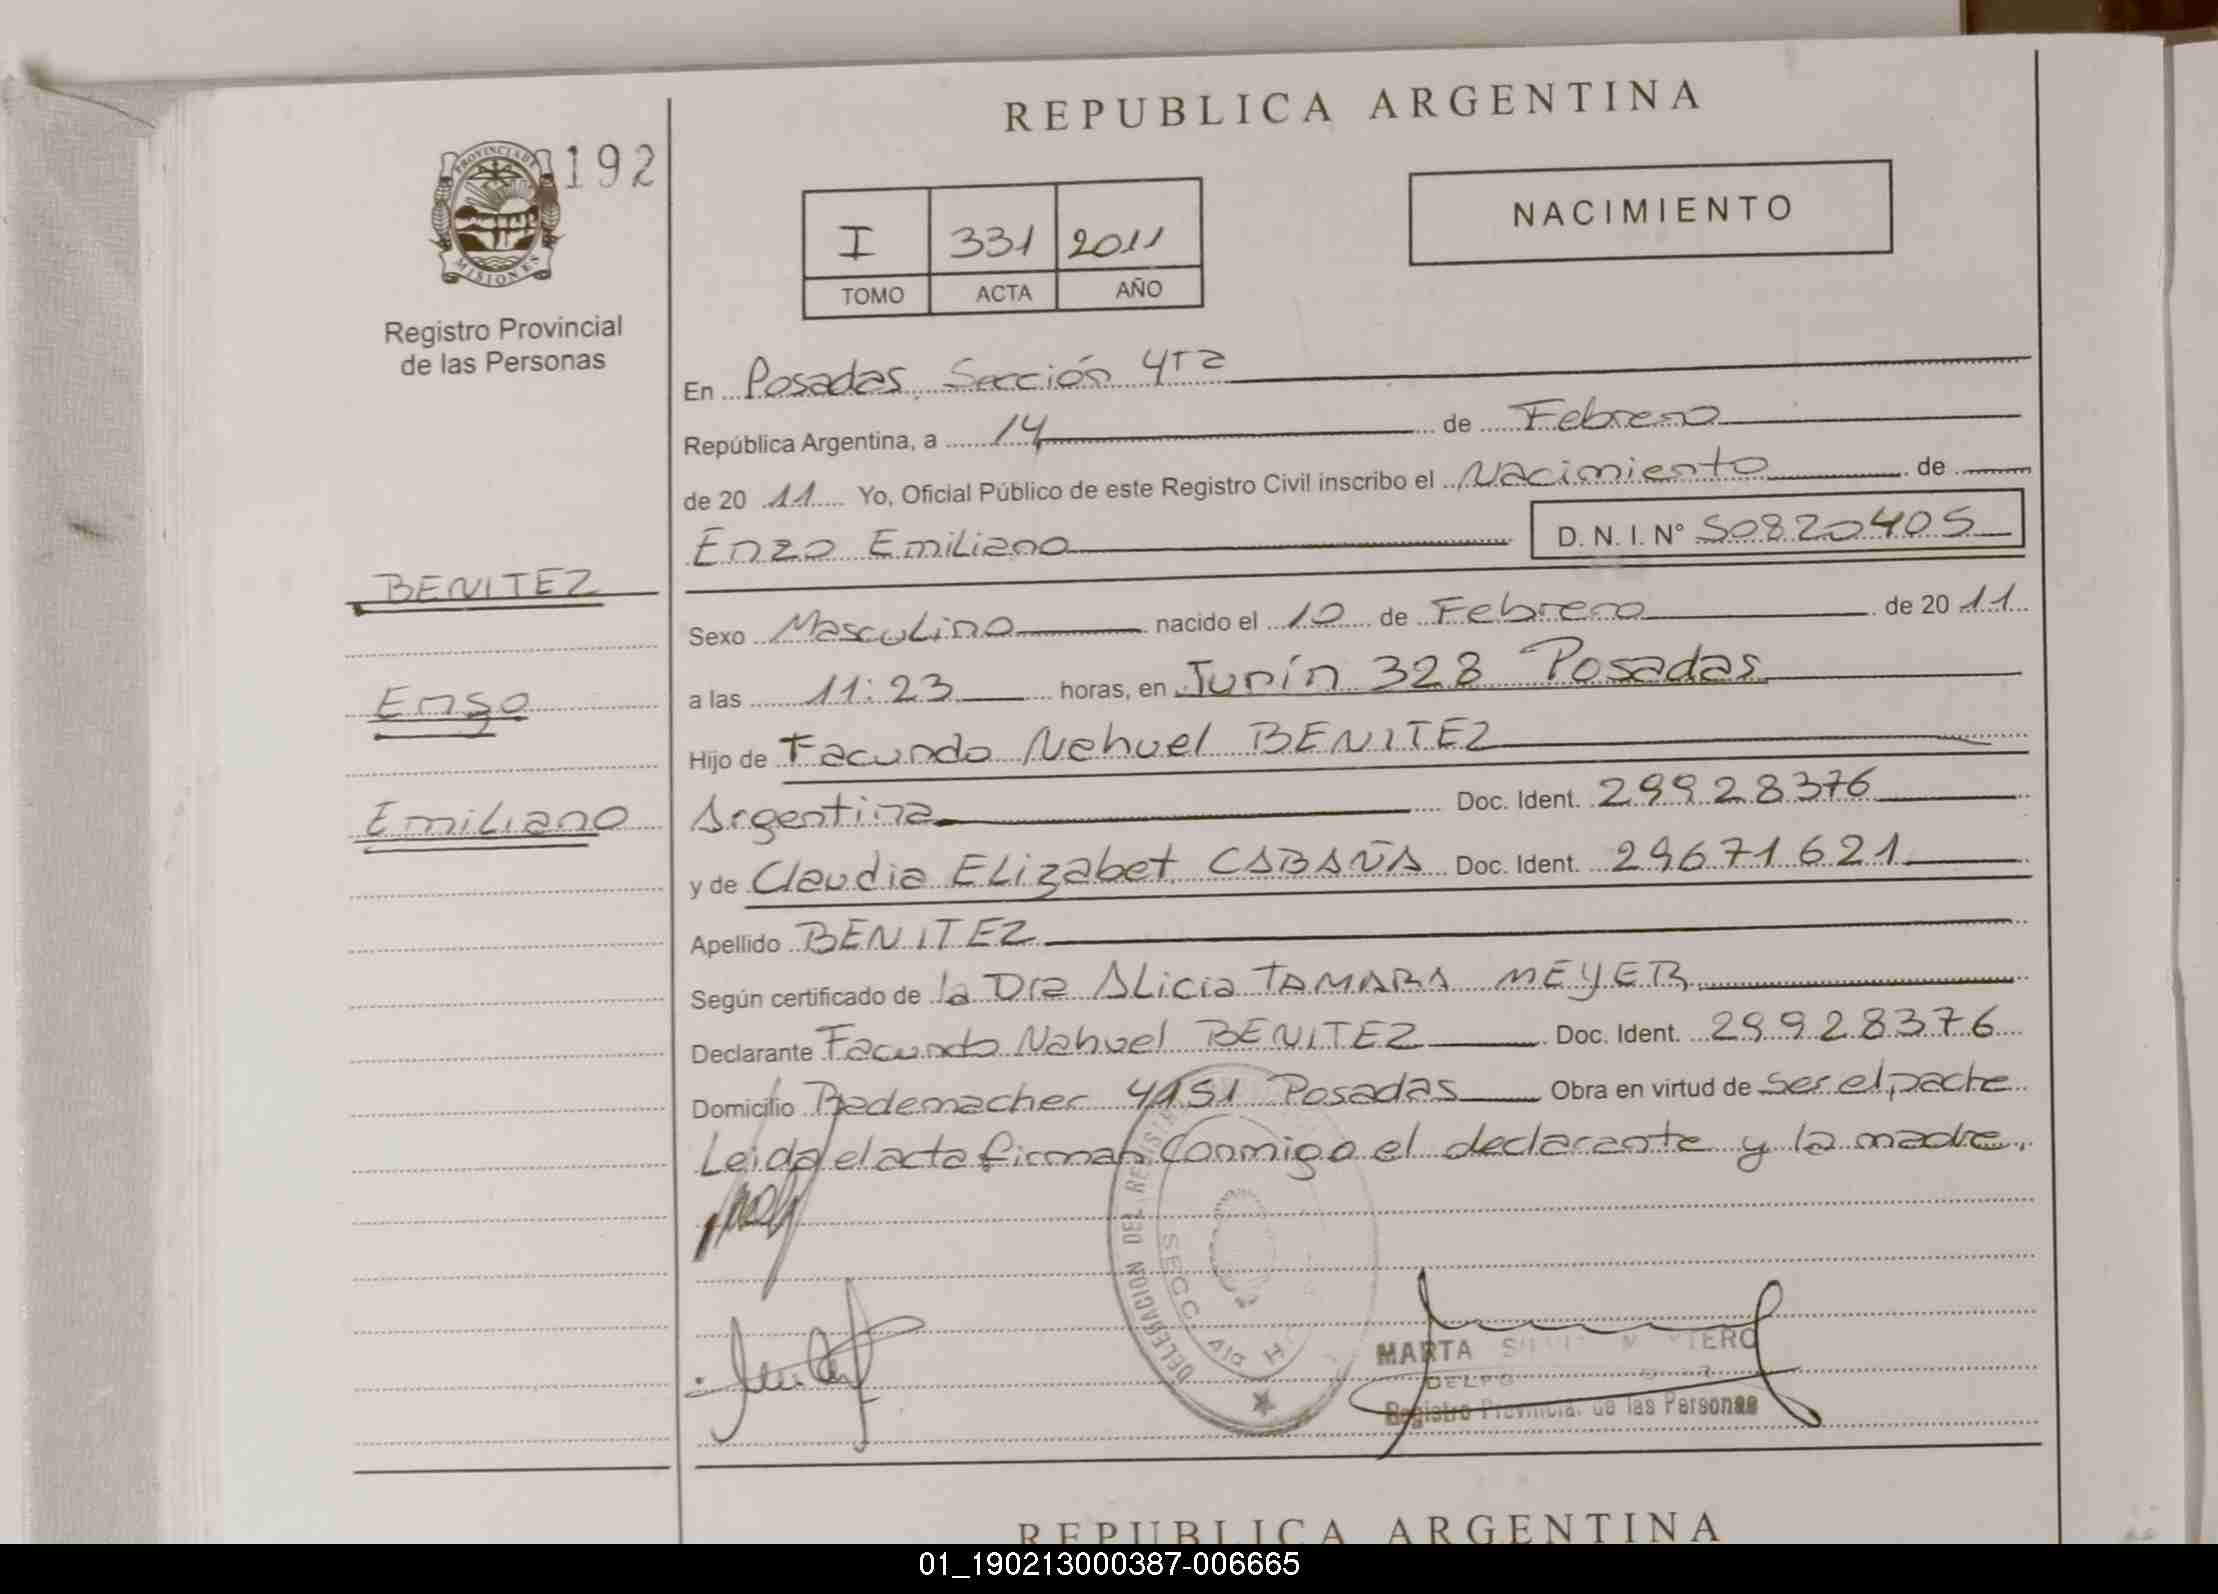 REPUBLICA ARGENTINA
PROVINCIA DE
MISIONES
192
Registro Provincial
de las Personas
I 331 2011
TOMO ACTA AÑO
NACIMIENTO
En Posadas, Sección 4ta
República Argentina, a 14 de Febrero
de 20 11 Yo, Oficial Público de este Registro Civil inscribo el Nacimiento de
Enzo Emiliano D. N. I. N° 50820405
BENITEZ
Enzo
Emiliano
Sexo Masculino nacido el 10 de Febrero de 20 11
a las 11:23 horas, en Junín 328 Posadas
Hijo de Facundo Nahuel BENITEZ
Argentina Doc. Ident. 29928376
y de Claudia Elizabet CABAÑA Doc. Ident. 29671621
Apellido BENITEZ
Según certificado de la Dra Alicia TAMARA MEYER
Declarante Facundo Nahuel BENITEZ Doc. Ident. 29928376
Domicilio 4151 Posadas Obra en virtud de ser el padre
Leida el acta firman conmigo el declarante y la madre.
DELEGACION DEL
SECC. 4ta
MARTA
Registro Provincial de las Personas
REPUBLICA ARGENTINA
01_190213000387-006665